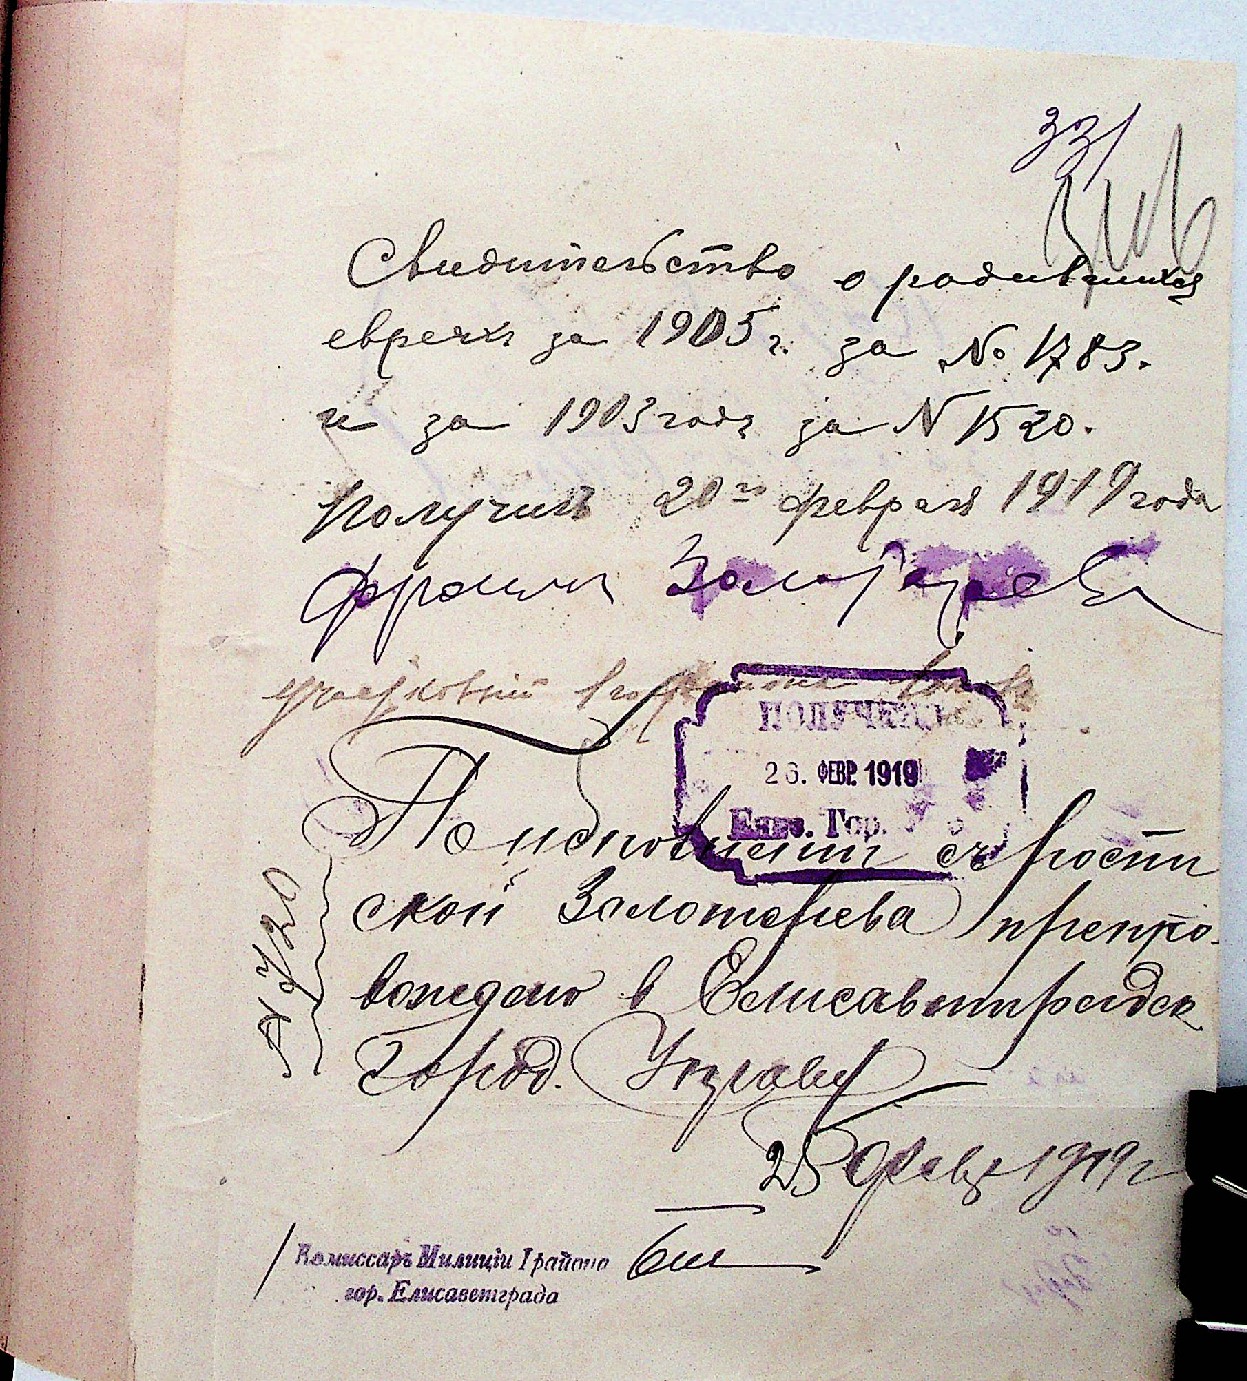 331
Свидительство о родившихся
евреях за 1905 г. за № 1783.
и за 1903 годъ за N 1520.
Получилъ 20го февраля 1919 года
Фроим Золотарев
участковый
ПОЛУЧЕНО
26. ФЕВР 1919
Елис. Гор.
По исполнении съ роспи
ской Золотарева препро
вождено в Елисаветградск
Город. Управу
№ 720
25 Февр 1919 г
Комиссаръ Милиціи I района
гор. Елисаветграда